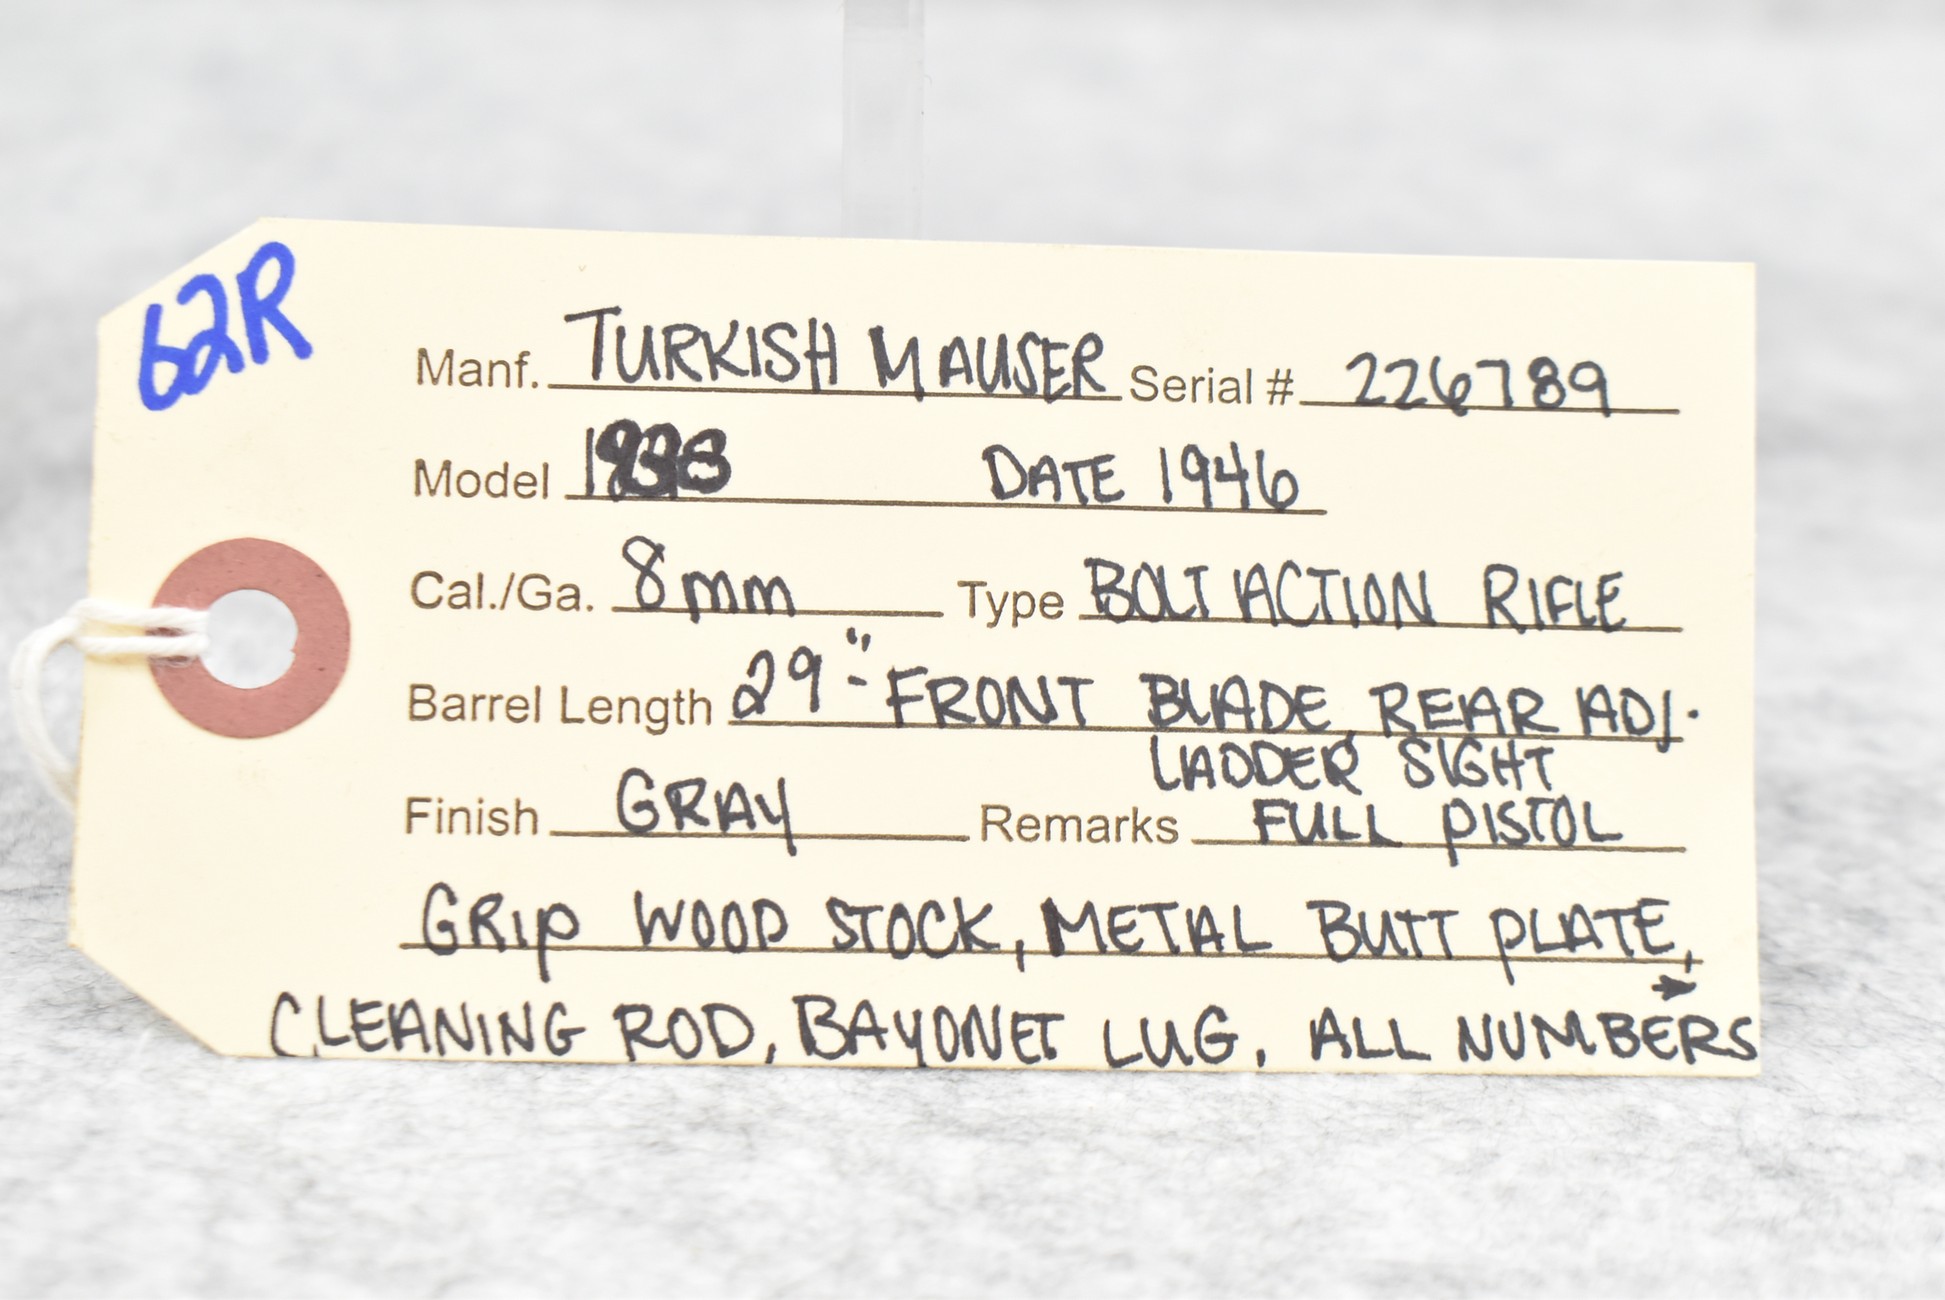 62R
Manf. TURKISH MAUSER Serial # 226789
Model DATE 1946
Cal./Ga. 8mm Type BOLT ACTION RIFLE
Barrel Length 29"- FRONT BLADE, REAR ADJ.
LADDER SIGHT
Finish GRAY Remarks FULL PISTOL
GRIP WOOD STOCK, METAL BUTT PLATE,
CLEANING ROD, BAYONET LUG, ALL NUMBERS →